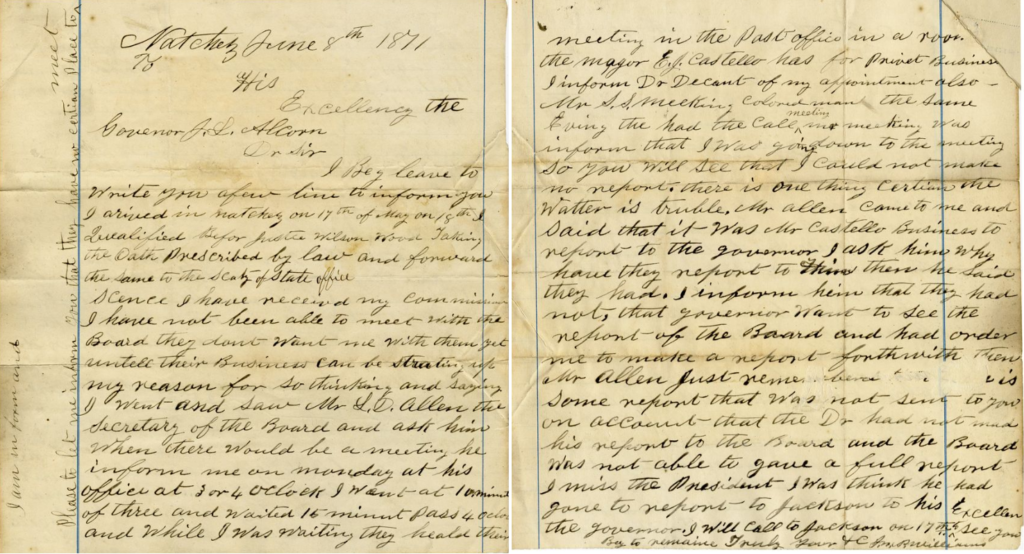 Natchez June 8th 1871
To
His
Excellency the
Govenor J. L. Alcorn
Dr Sir
I Beg leave to
Write you afew line to inform you
I arived in natchez on 17th of May on 18th I
Qualified Befor Justice Wilson Wood Taking
the Oath Prescribed by law and forward
the same to the Scaty of State office
Scence I have received my Commission
I have not been able to meet With the
Board they dont Want me With them yet
untell their Business can be strating up
my reason for so thinking and saying
I Went and saw Mr L.D. Allen the
Secretary of the Board and ask him
When there Would be a meeting he
inform me on monday at his
office at 3 or 4 oclock I Want at 10 minut
of three and Waited 15 minut Pass 4 oclock
and While I Was Waiting they heald their
I am inform and
Please to let me inform you that they have no certian Place to meet
meeting in the Post office in a room
the mayor E.J. Castello has for Privet Business
I inform Dr Decant of my appointment also
Mr S.S. Meeking Colored man the same
Eving the had the Call meeting
meeting Was
inform that I Was going down to the meeting
So you Will see that I Could not make
no report. there is one thing Certian the
Watter is truble. Mr Allen Came to me and
Said that it Was Mr Castello Business to
report to the governor I ask him Why
have they report to him then he said
they had. I inform him that they had
not, that governor Want to See the
report of the Baard and had order
me to make a report forthwith then
Mr Allen Just is
Some report that Was not sent to you
on account that the Dr had not mad
his report to the Board and the Board
Was not able to gave a full report
I miss the President I Was think he had
gone to report to Jackson to his Excellen
the governor. I Will Call to Jackson on 17th & See you
Beg to remaine Truly your